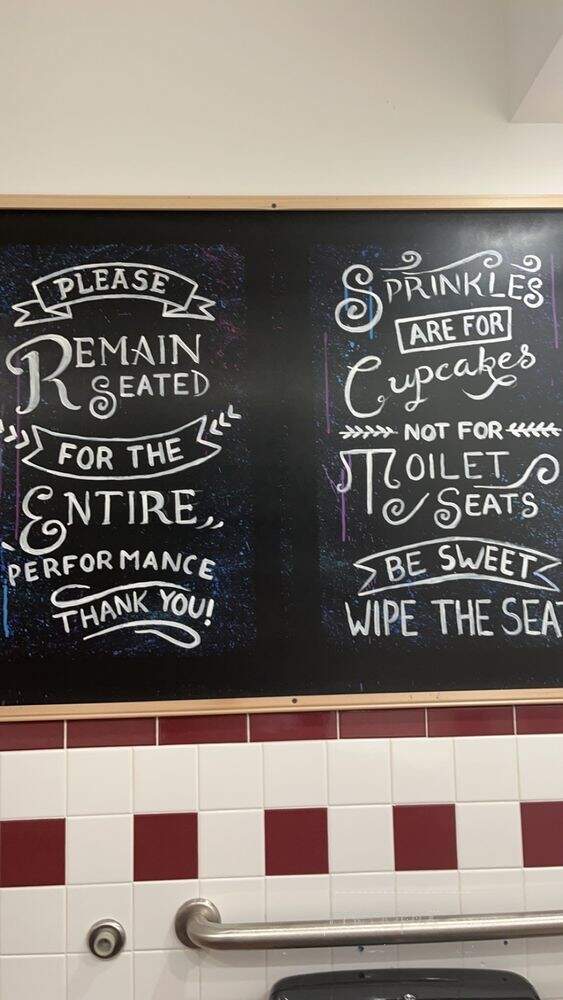 PLEASE
REMAIN
SEATED
FOR THE
ENTIRE,,
PERFORMANCE
THANK YOU!
SPRINKLES
ARE FOR
Cupcakes
NOT FOR
TOILET
SEATS
BE SWEET
WIPE THE SEAT